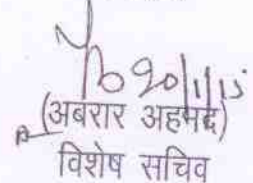 20/1/15
(अबरार अहमद)
विशेष सचिव